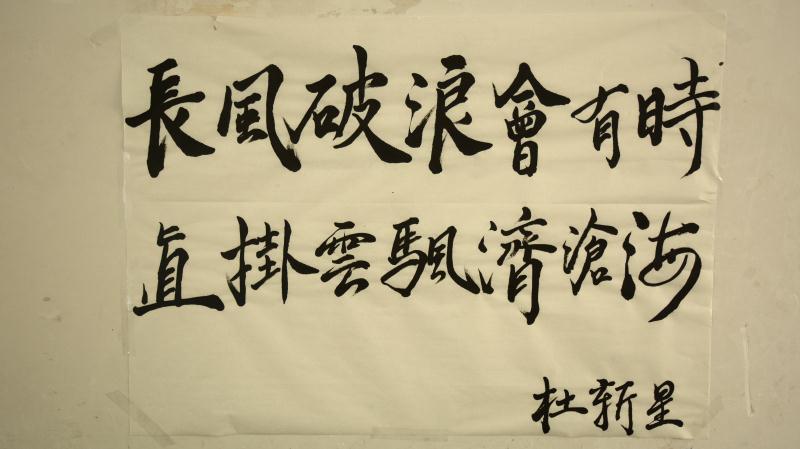 長風破浪會有時
直掛雲颿濟滄海
杜新星